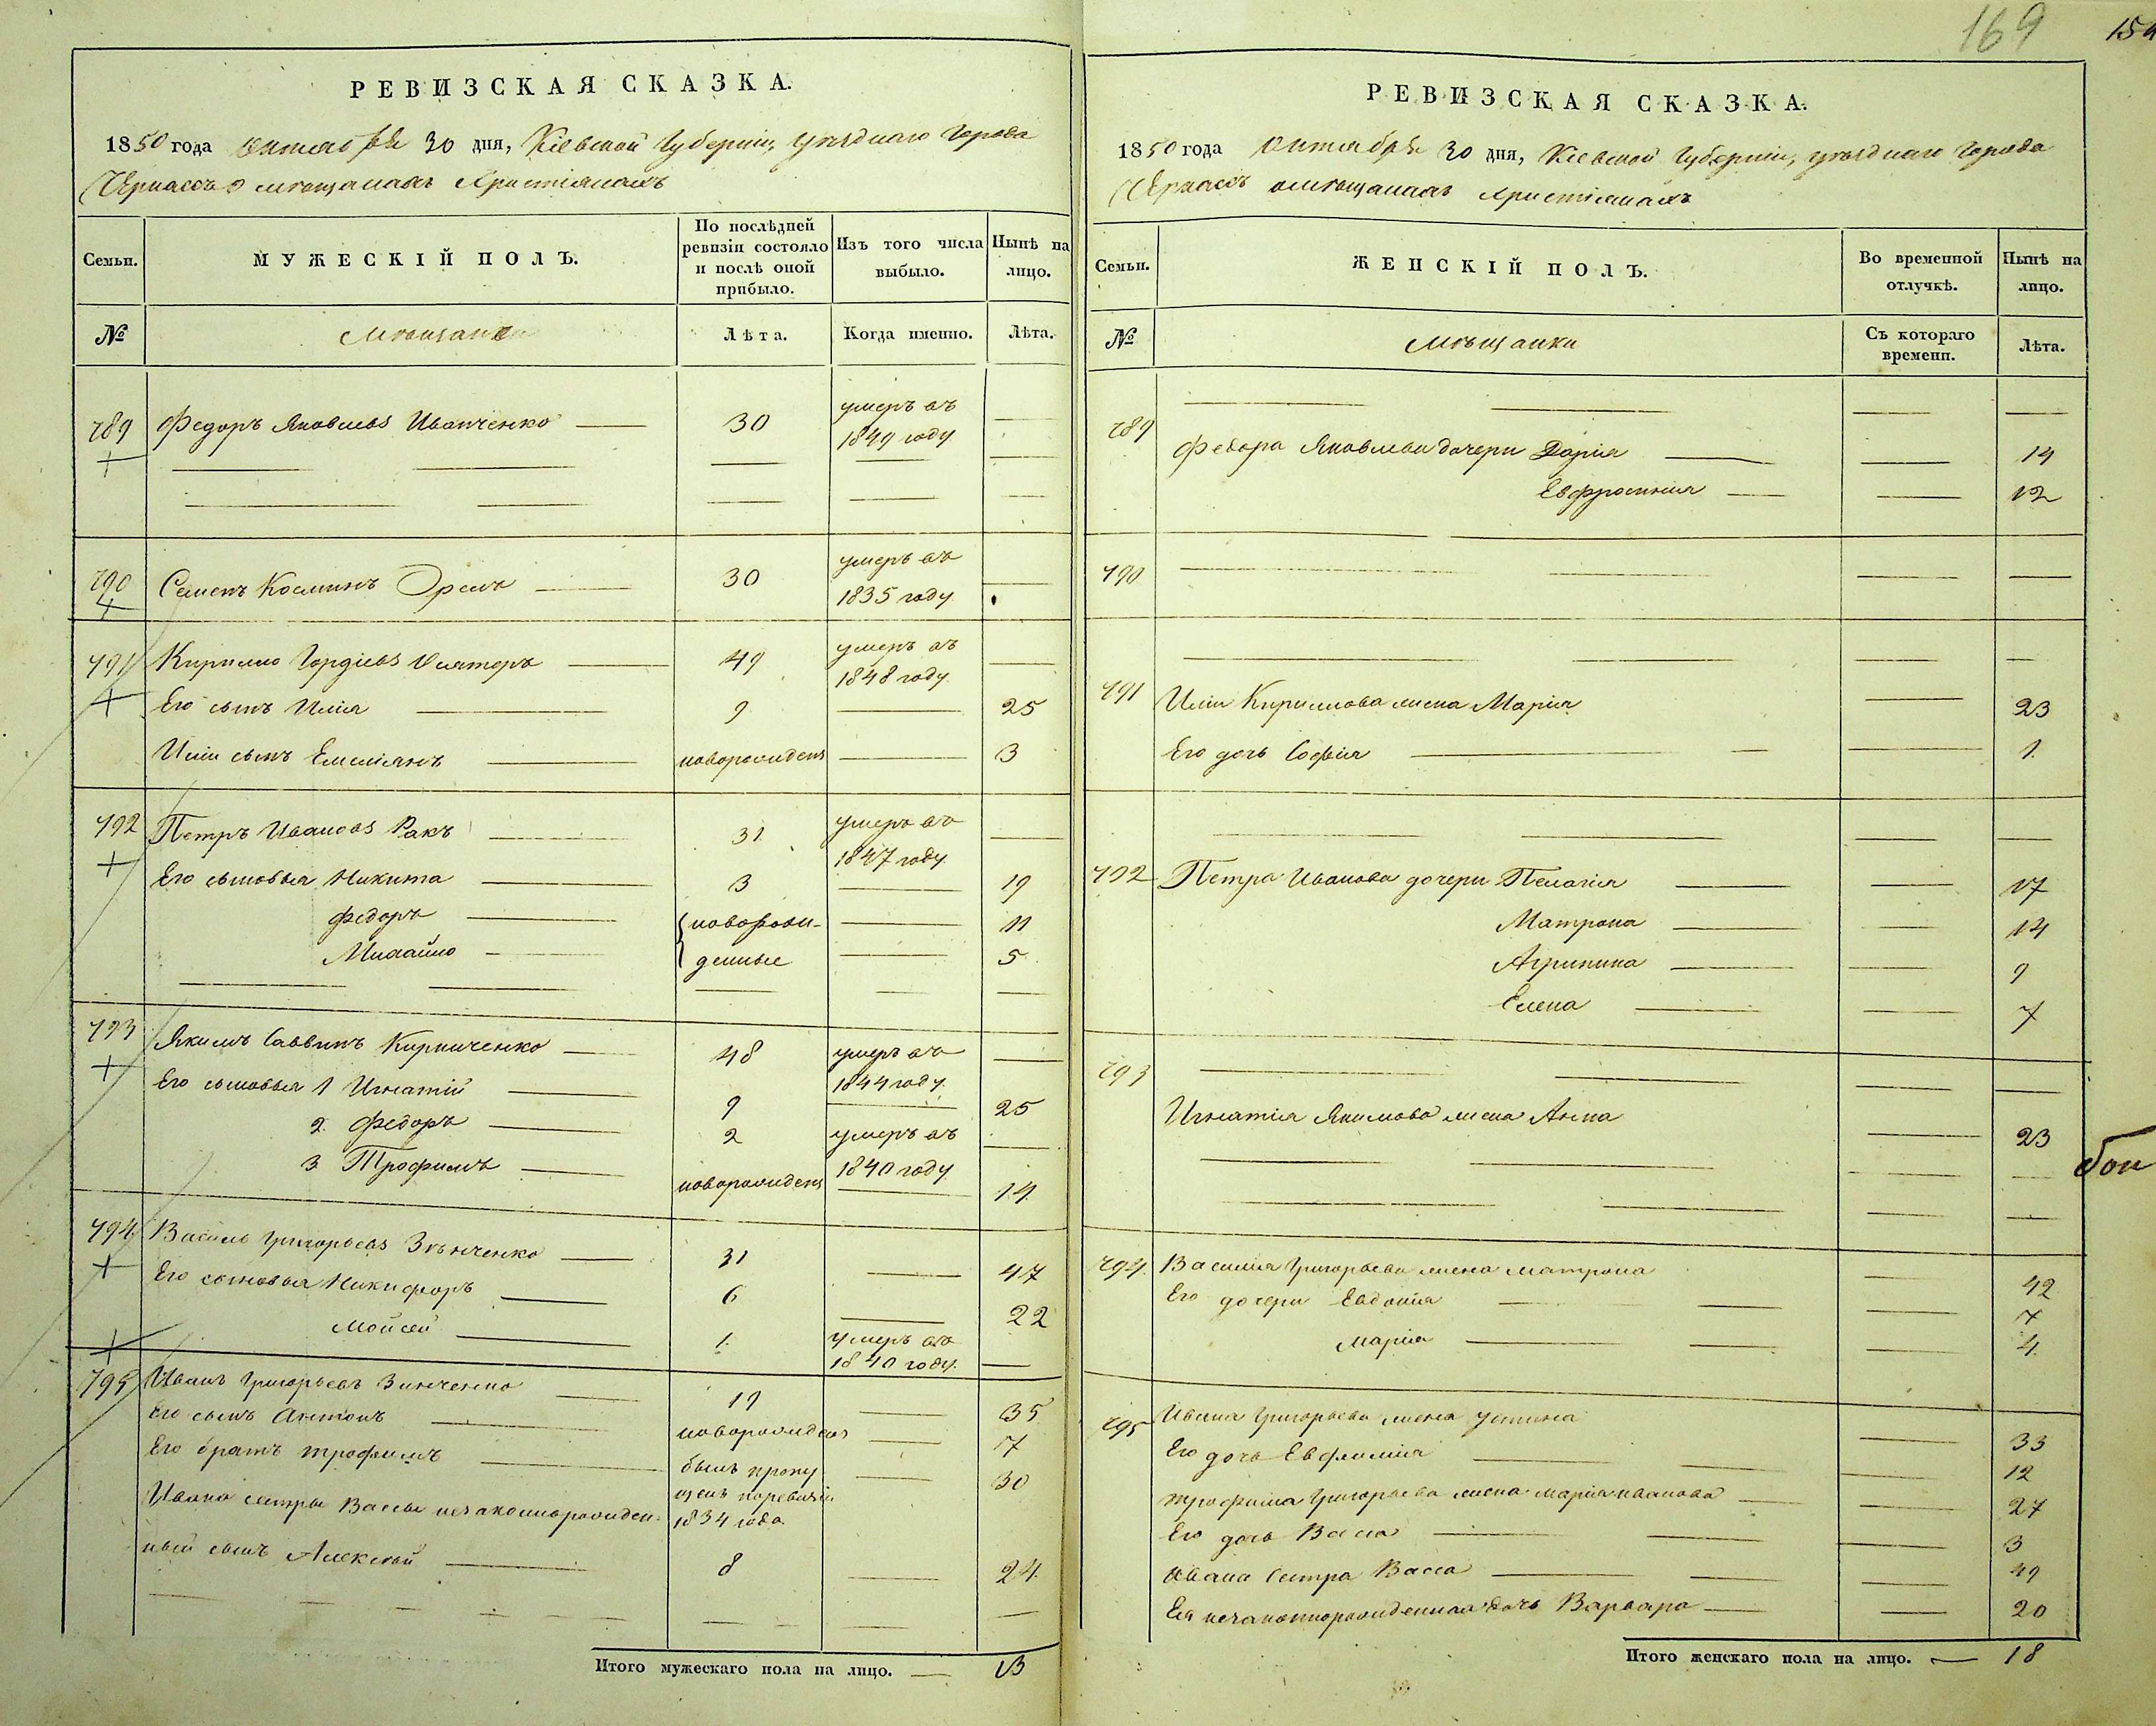 169
РЕВИЗСКАЯ СКАЗКА.
1850 года Октября 30 дня, Кіевской Губерніи, уѣзднаго Города
Черкассъ о мѣщанахъ Христіянахъ
Семьи.
МУЖЕСКІЙ ПОЛЪ.
По послѣдней ревизіи состояло и послѣ оной прибыло.
Изъ того числа выбыло.
Нынѣ на лицо.
№
Мѣщане
Лѣта.
Когда именно.
Лѣта.
789 Федоръ Яковлевъ Иванченко — 30 умеръ въ 1849 году —
790 Семенъ Косминъ Орелъ — 30 умеръ въ 1835 году —
791 Кирилло Гордіевъ 49 умеръ въ 1848 году —
Его сынъ Илія — 9 — 25
Иліи сынъ Емеліянъ — новорожденъ — 3
792 Петръ Ивановъ Ракъ — 31 умеръ въ 1847 году —
Его сыновья Никита — 3 — 19
Федоръ — новорож- — 11
Михайло — денные — 5
793 Якимъ Саввинъ Кириченко — 48 умеръ въ 1844 году —
Его сыновья 1 Игнатій — 9 — 25
2. Федоръ — 2 умеръ въ 1840 году —
3 Трофимъ — новорожденъ — 14
794 Василь Григорьевъ Зѣнченко — 31 — 47
Его сыновья Никифоръ — 6 — 22
Мойсей — 1. умеръ въ 1840 году. —
795 Иванъ Григорьевъ Зинченко — 19 — 35
Его сынъ Антонъ — новорожденъ — 7
Его братъ Трофимъ — былъ пропущенъ поревизіи 1834 года — 30
Ивана сестры Вассы незаконнорожден-
ный сынъ Алексѣй — 8 — 24
Итого мужескаго пола на лицо. — 13
РЕВИЗСКАЯ СКАЗКА.
1850 года Октября 30 дня, Кіевской Губерніи, уѣзднаго Города
Черкасъ о мѣщанахъ Христіянахъ
Семьи.
ЖЕНСКІЙ ПОЛЪ.
Во временной отлучкѣ.
Нынѣ на лицо.
№
Мѣщанки
Съ котораго времени.
Лѣта.
789
Федора Яковлева дочери Дарія — 14
Евфросинія — 12
790
791 Иліи Кириллова жена Марія 23
Его дочь Софія — 1.
792 Петра Иванова дочери Пелагія — 17
Матрона — 14
Агрипина — 9
Елена — 7
793
Игнатія Якимова жена Анна 23
794. Василія Григорьева жена Матрона 42
Его дочери Евдокія — 7
Марія — 4.
795 Ивана Григорьева жена Устина 33
Его дочь Евфимія — 12
Трофима Григорьева жена Марія Иванова — 27
Его дочь Васса — 3
Ивана Сестра Васса — 49
Ея незаконнорожденная дочь Варвара — 20
Итого женскаго пола на лицо. — 18